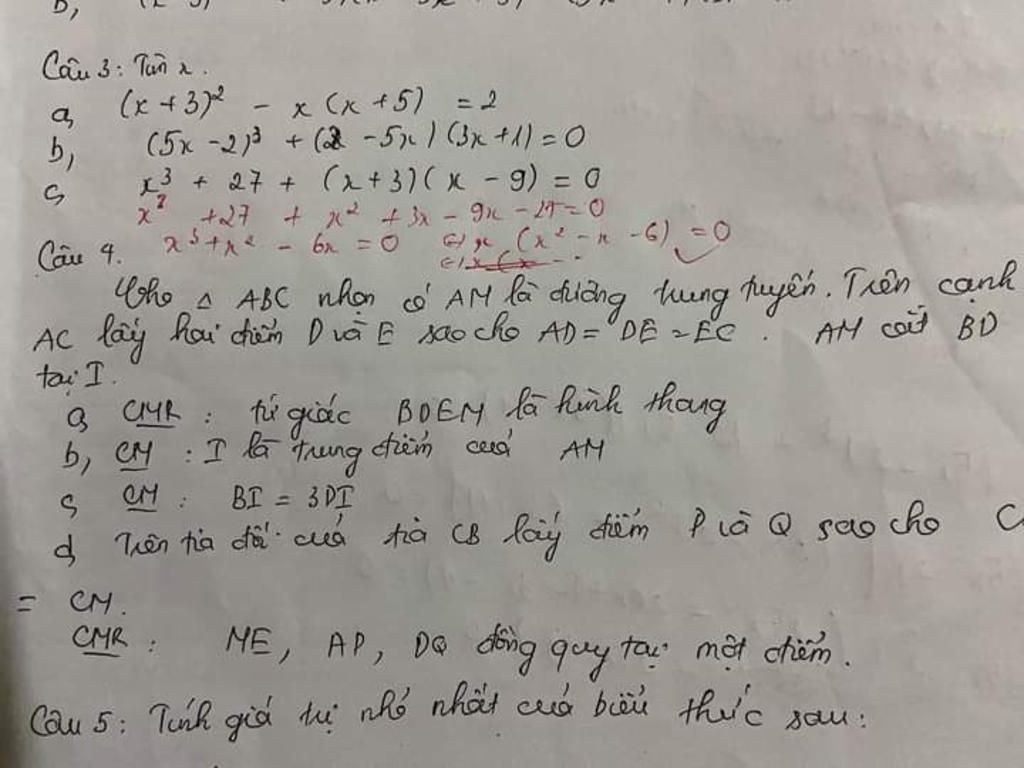 b,
Câu 3: Tìm x.
a, (x + 3)² - x (x + 5) = 2
b, (5x - 2)³ + (2 - 5x) (3x + 1) = 0
c, x³ + 27 + (x + 3) (x - 9) = 0
x³ + 27 + x² + 3x - 9x - 27 = 0
x³ + x² - 6x = 0 <=> x (x² - x - 6) = 0
Câu 4.
Cho △ ABC nhọn có AM là đường trung tuyến. Trên cạnh
AC lấy hai điểm D và E sao cho AD = DE = EC. AM cắt BD
tại I.
a, CMR: tứ giác BDEM là hình thang
b, CM: I là trung điểm của AM
c, CM: BI = 3DI
d, Trên tia đối của tia CB lấy điểm P và Q sao cho
= CM.
CMR: ME, AP, DQ đồng quy tại một điểm.
Câu 5: Tính giá trị nhỏ nhất của biểu thức sau: